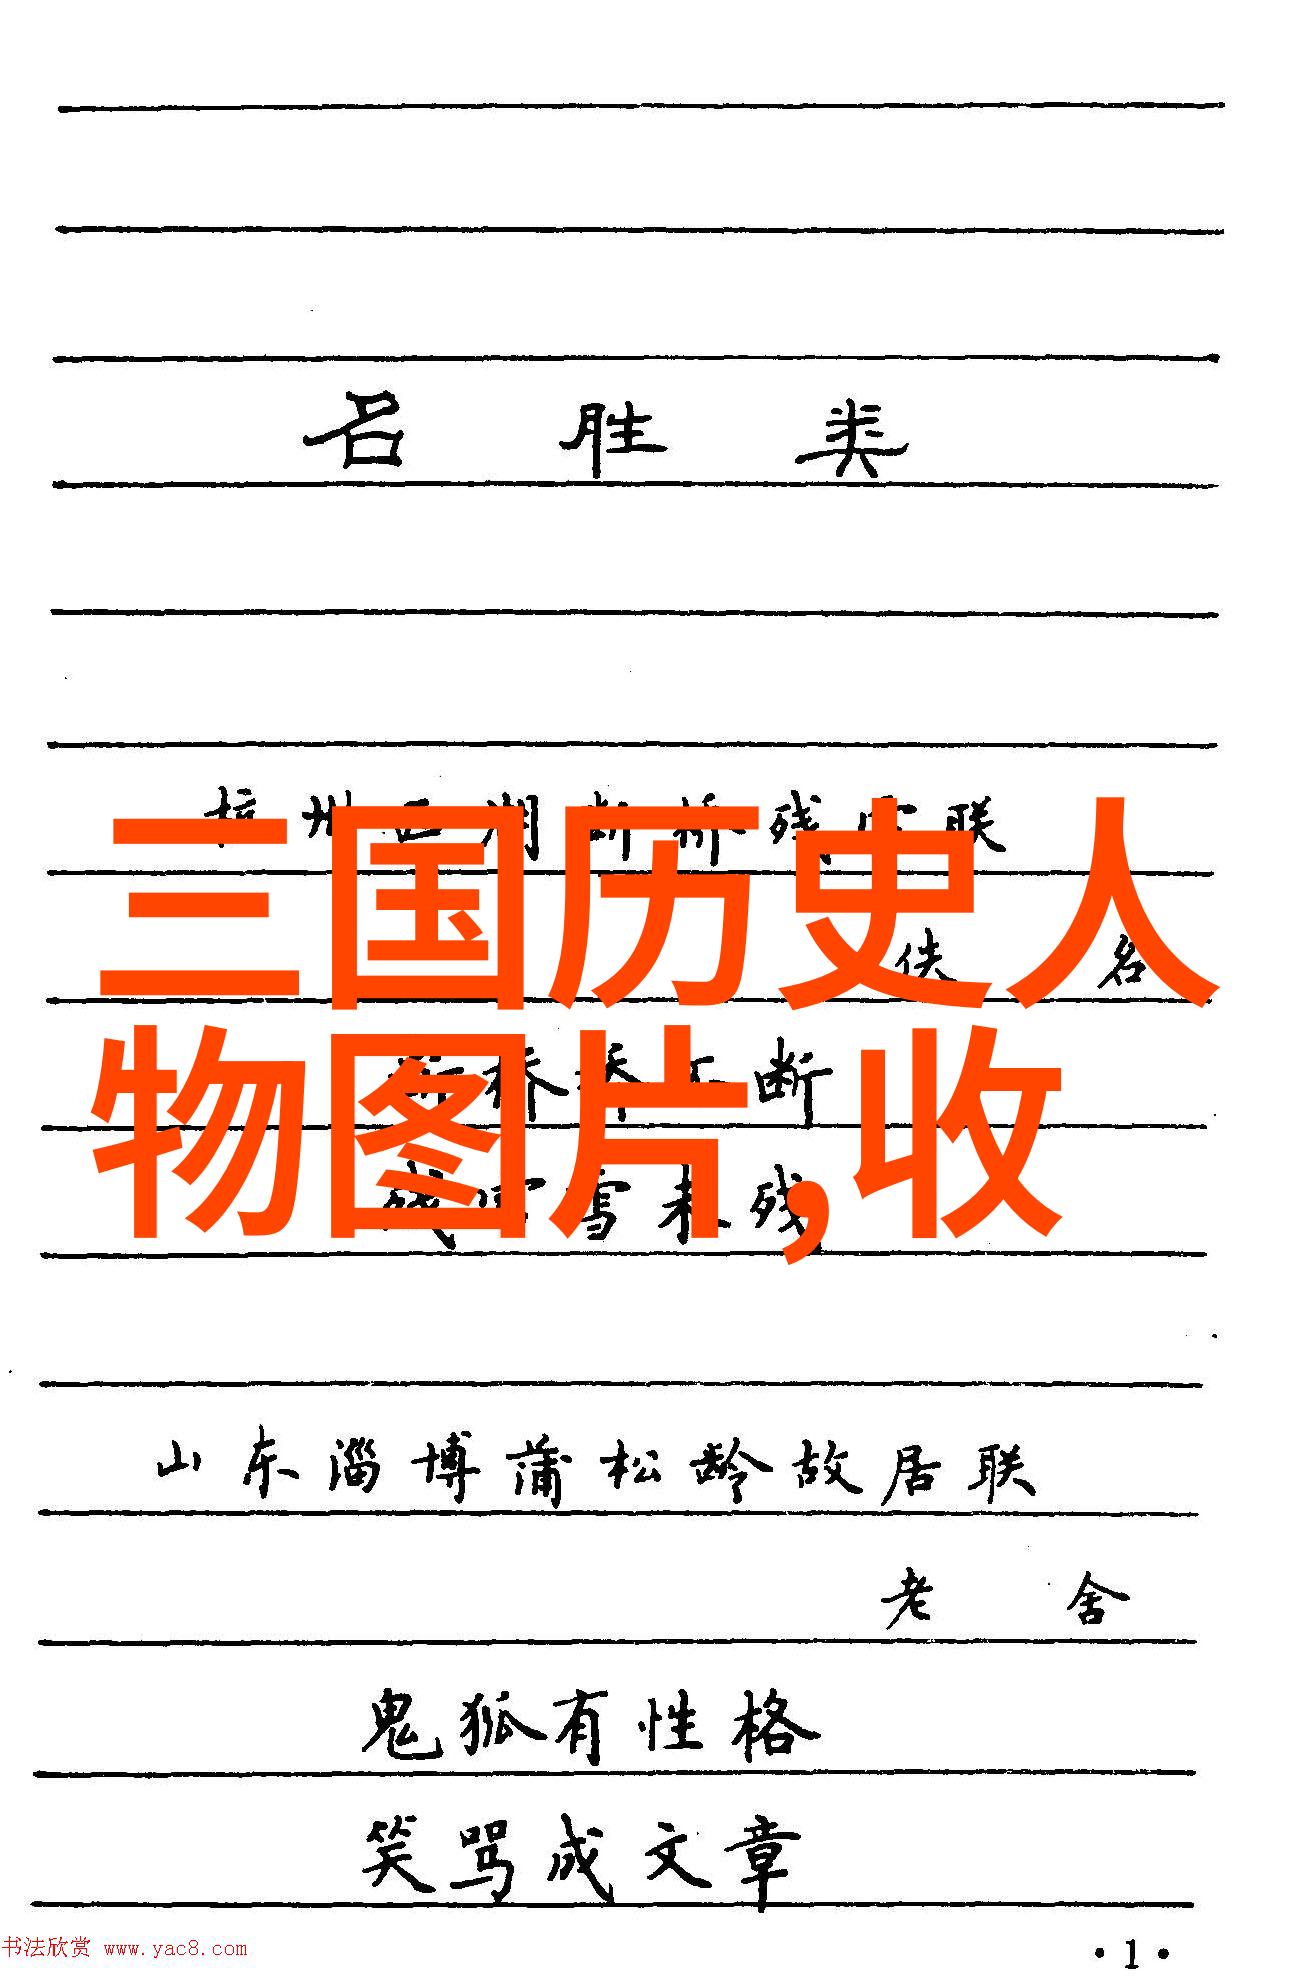 名胜类
杭州西湖断桥残雪联
佚名
断桥桥不断
残雪雪未残
三国历史人
物图片,收
山东淄博蒲松龄故居联
老舍
鬼狐有性格
笑骂成文章
书法欣赏 www.yac8.com
·1·